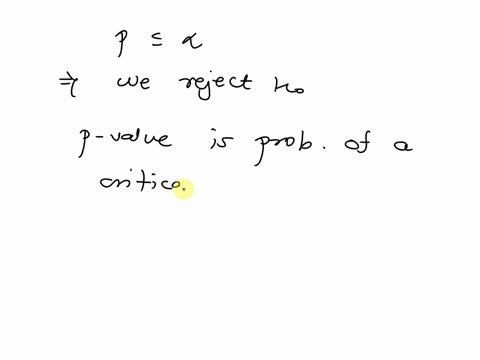 p ≤ α
⇒ we reject H₀
p-value is prob. of a
critica